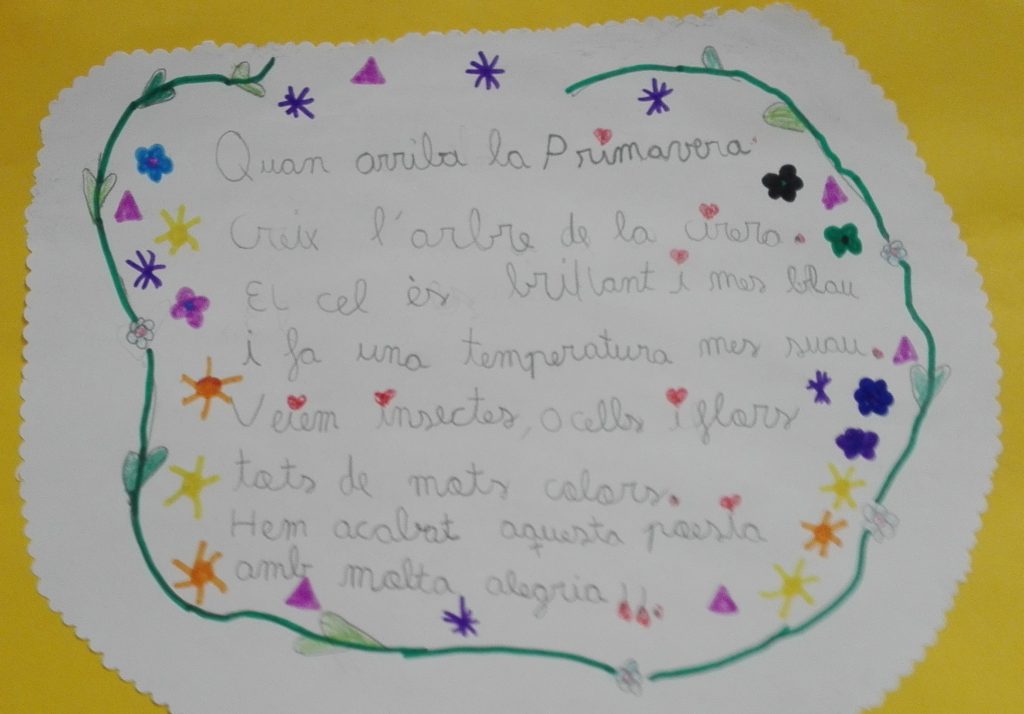 Quan arriba la Primavera
Creix l'arbre de la cirera.
El cel ès brillant i mes blau
i fa una temperatura mes suau.
Veiem insectes, ocells i flors
tots de mots colors.
Hem acabat aquesta poesia
amb molta alegria!!.